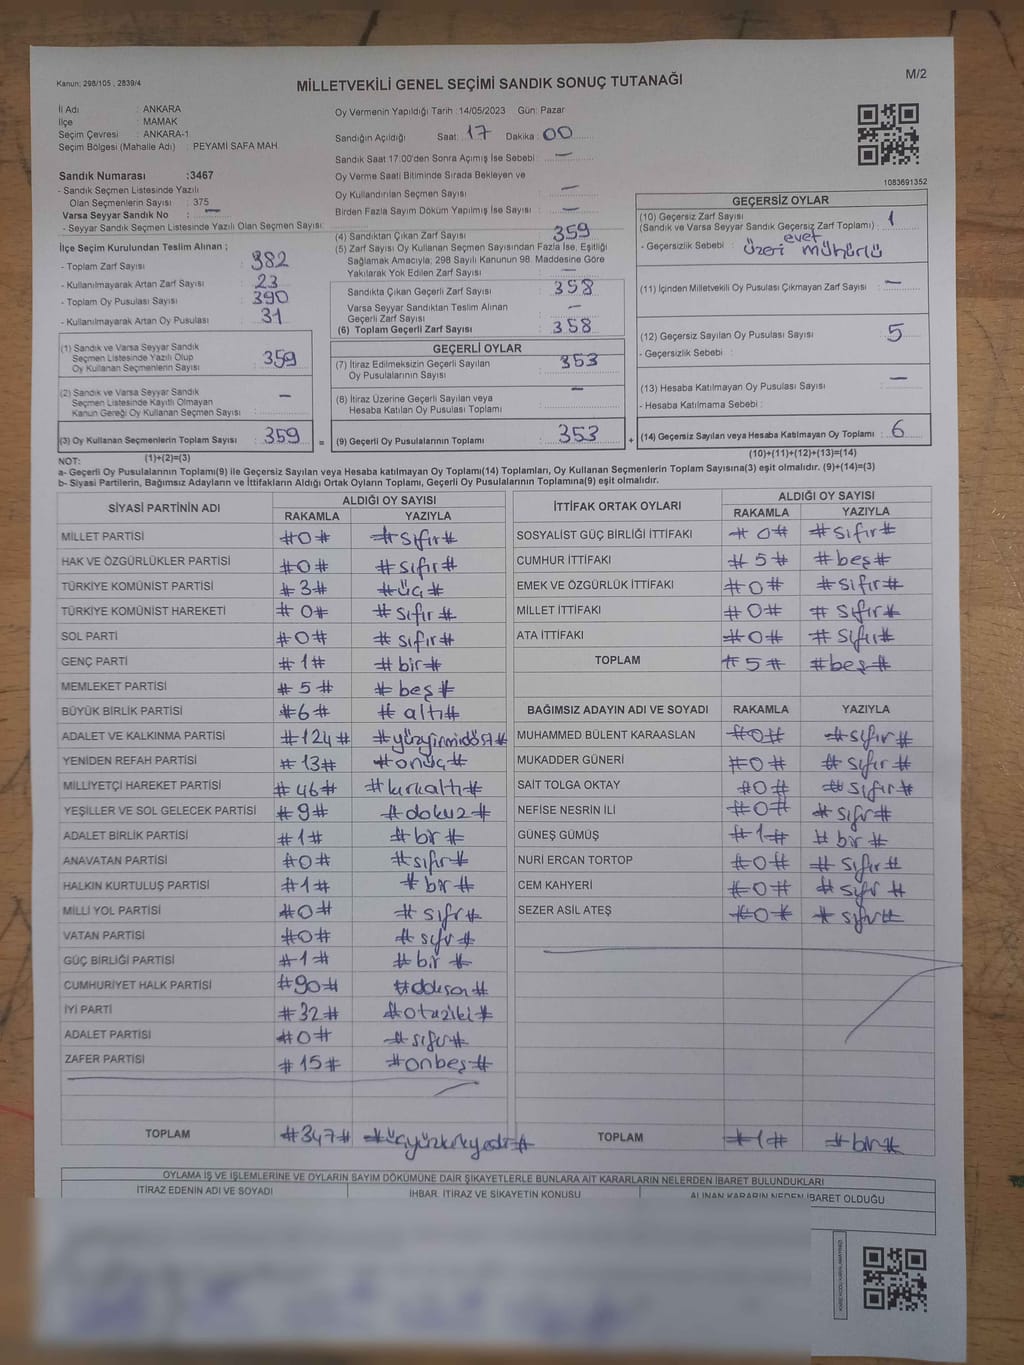 Kanun: 298/105 , 2839/4
MİLLETVEKİLİ GENEL SEÇİMİ SANDIK SONUÇ TUTANAĞI
M/2
İl Adı : ANKARA
İlçe : MAMAK
Seçim Çevresi : ANKARA-1
Seçim Bölgesi (Mahalle Adı) : PEYAMİ SAFA MAH
Oy Vermenin Yapıldığı Tarih : 14/05/2023 Gün: Pazar
Sandığın Açıldığı Saat: 17 Dakika: 00
Sandık Saat 17.00'den Sonra Açımış İse Sebebi : —
Oy Verme Saati Bitiminde Sırada Bekleyen ve
Oy Kullandırılan Seçmen Sayısı : —
Birden Fazla Sayım Döküm Yapılmış İse Sayısı : —
1083691352
Sandık Numarası :3467
- Sandık Seçmen Listesinde Yazılı
Olan Seçmenlerin Sayısı : 375
Varsa Seyyar Sandık No : —
- Seyyar Sandık Seçmen Listesinde Yazılı Olan Seçmen Sayısı:
İlçe Seçim Kurulundan Teslim Alınan ;
- Toplam Zarf Sayısı : 382
- Kullanılmayarak Artan Zarf Sayısı : 23
- Toplam Oy Pusulası Sayısı : 390
- Kullanılmayarak Artan Oy Pusulası : 31
(1) Sandık ve Varsa Seyyar Sandık
Seçmen Listesinde Yazılı Olup
Oy Kullanan Seçmenlerin Sayısı : 359
(2) Sandık ve Varsa Seyyar Sandık
Seçmen Listesinde Kayıtlı Olmayan
Kanun Gereği Oy Kullanan Seçmen Sayısı : —
(3) Oy Kullanan Seçmenlerin Toplam Sayısı : 359
(1)+(2)=(3)
(4) Sandıktan Çıkan Zarf Sayısı : 359
(5) Zarf Sayısı Oy Kullanan Seçmen Sayısından Fazla İse, Eşitliği
Sağlamak Amacıyla; 298 Sayılı Kanunun 98. Maddesine Göre
Yakılarak Yok Edilen Zarf Sayısı : —
Sandıkta Çıkan Geçerli Zarf Sayısı : 358
Varsa Seyyar Sandıktan Teslim Alınan
Geçerli Zarf Sayısı : —
(6) Toplam Geçerli Zarf Sayısı : 358
GEÇERLİ OYLAR
(7) İtiraz Edilmeksizin Geçerli Sayılan
Oy Pusulalarının Sayısı : 353
(8) İtiraz Üzerine Geçerli Sayılan veya
Hesaba Katılan Oy Pusulası Toplamı : —
= (9) Geçerli Oy Pusulalarının Toplamı : 353 +
GEÇERSİZ OYLAR
(10) Geçersiz Zarf Sayısı
(Sandık ve Varsa Seyyar Sandık Geçersiz Zarf Toplamı) : 1
- Geçersizlik Sebebi : üzeri evet mühürlü
(11) İçinden Milletvekili Oy Pusulası Çıkmayan Zarf Sayısı : —
(12) Geçersiz Sayılan Oy Pusulası Sayısı : 5
- Geçersizlik Sebebi :
(13) Hesaba Katılmayan Oy Pusulası Sayısı : —
- Hesaba Katılmama Sebebi :
(14) Geçersiz Sayılan veya Hesaba Katılmayan Oy Toplamı : 6
(10)+(11)+(12)+(13)=(14)
NOT:
a- Geçerli Oy Pusulalarının Toplamı(9) ile Geçersiz Sayılan veya Hesaba katılmayan Oy Toplamı(14) Toplamları, Oy Kullanan Seçmenlerin Toplam Sayısına(3) eşit olmalıdır. (9)+(14)=(3)
b- Siyasi Partilerin, Bağımsız Adayların ve İttifakların Aldığı Ortak Oyların Toplamı, Geçerli Oy Pusulalarının Toplamına(9) eşit olmalıdır.
SİYASİ PARTİNİN ADI ALDIĞI OY SAYISI
RAKAMLA YAZIYLA
MİLLET PARTİSİ #0# #sıfır#
HAK VE ÖZGÜRLÜKLER PARTİSİ #0# #sıfır#
TÜRKİYE KOMÜNİST PARTİSİ #3# #üç#
TÜRKİYE KOMÜNİST HAREKETİ #0# #sıfır#
SOL PARTİ #0# #sıfır#
GENÇ PARTİ #1# #bir#
MEMLEKET PARTİSİ #5# #beş#
BÜYÜK BİRLİK PARTİSİ #6# #altı#
ADALET VE KALKINMA PARTİSİ #124# #yüzyirmidört#
YENİDEN REFAH PARTİSİ #13# #onüç#
MİLLİYETÇİ HAREKET PARTİSİ #46# #kırkaltı#
YEŞİLLER VE SOL GELECEK PARTİSİ #9# #dokuz#
ADALET BİRLİK PARTİSİ #1# #bir#
ANAVATAN PARTİSİ #0# #sıfır#
HALKIN KURTULUŞ PARTİSİ #1# #bir#
MİLLİ YOL PARTİSİ #0# #sıfır#
VATAN PARTİSİ #0# #sıfır#
GÜÇ BİRLİĞİ PARTİSİ #1# #bir#
CUMHURİYET HALK PARTİSİ #90# #doksan#
İYİ PARTİ #32# #otuziki#
ADALET PARTİSİ #0# #sıfır#
ZAFER PARTİSİ #15# #onbeş#
TOPLAM #347# #üçyüzkırkyedi#
İTTİFAK ORTAK OYLARI ALDIĞI OY SAYISI
RAKAMLA YAZIYLA
SOSYALİST GÜÇ BİRLİĞİ İTTİFAKI #0# #sıfır#
CUMHUR İTTİFAKI #5# #beş#
EMEK VE ÖZGÜRLÜK İTTİFAKI #0# #sıfır#
MİLLET İTTİFAKI #0# #sıfır#
ATA İTTİFAKI #0# #sıfır#
TOPLAM #5# #beş#
BAĞIMSIZ ADAYIN ADI VE SOYADI RAKAMLA YAZIYLA
MUHAMMED BÜLENT KARAASLAN #0# #sıfır#
MUKADDER GÜNERİ #0# #sıfır#
SAİT TOLGA OKTAY #0# #sıfır#
NEFİSE NESRİN İLİ #0# #sıfır#
GÜNEŞ GÜMÜŞ #1# #bir#
NURİ ERCAN TORTOP #0# #sıfır#
CEM KAHYERİ #0# #sıfır#
SEZER ASİL ATEŞ #0# #sıfır#
TOPLAM #1# #bir#
OYLAMA İŞ VE İŞLEMLERİNE VE OYLARIN SAYIM DÖKÜMÜNE DAİR ŞİKAYETLERLE BUNLARA AİT KARARLARIN NELERDEN İBARET BULUNDUKLARI
İTİRAZ EDENİN ADI VE SOYADI İHBAR, İTİRAZ VE ŞİKAYETİN KONUSU ALINAN KARARIN NEDEN İBARET OLDUĞU